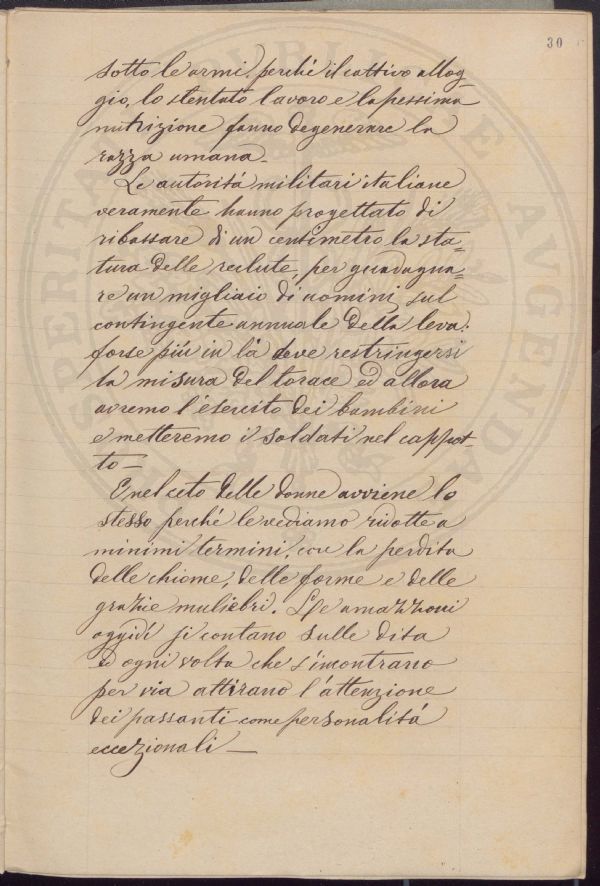 30
sotto le armi, perché il cattivo allog-
gio, lo stentato lavoro e la pessima
nutrizione fanno degenerare la
razza umana.
Le autoritá militari italiane
veramente hanno progettato di
ribassare di un centimetro la sta=
tura delle reclute, per guadagna=
re un migliaio di uomini sul
contingente annuale della leva:
forse piú in lá deve restringersi
la misura del torace ed allora
avremo l'esercito dei bambini
e metteremo i soldati nel cappot-
to —
E nel ceto delle donne avviene lo
stesso perché le vediamo ridotte a
minimi termini, con la perdita
delle chiome, delle forme e delle
grazie muliebri. Le amazzoni
oggidí si contano sulle dita
ed ogni volta che s'incontrano
per via attirano l'attenzione
dei passanti come personalitá
eccezionali —
PUBLICAE AUGENDAE